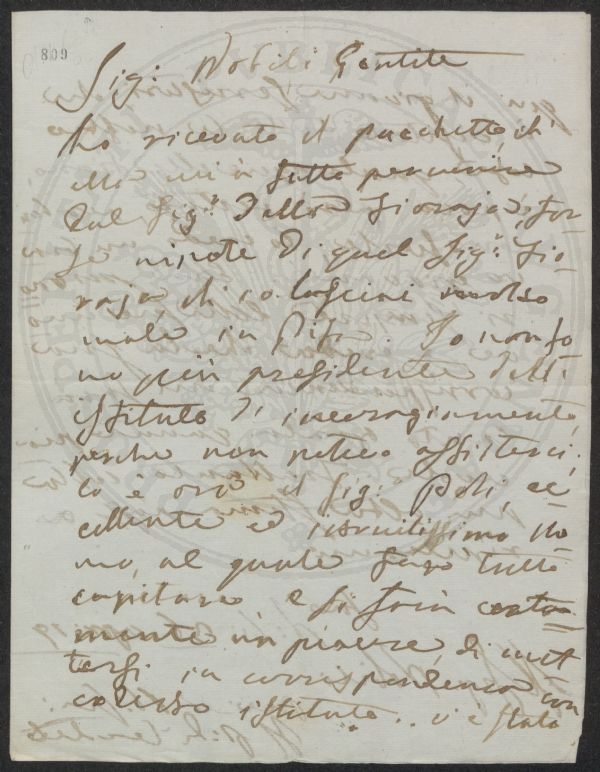 809
Sig: Nobili Gentile
ho ricevuto il pacchetto, ch'
ella mi à fatto pervenire
dal Sig.r Dallo Gioraja, for
se nipote di quel Sig.r Gio
raja, ch'io lasciai molto
male in Pisa. Io non so
no più presidente dell'
istituto d'incoragiamento,
perche non potevo assisterci.
Lo è ora il Sig: Poli, ec
cellente ed istruitissimo Uo
mo, al quale farò tutto
capitare, e si farà certa
mente un piacere di met
tersi in corrispondenza con
codesto istituto.. v'è stata